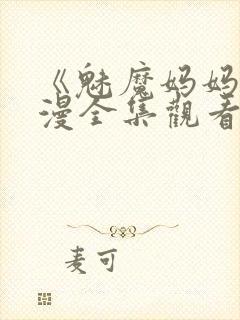 《魅魔妈妈
漫全集觀看
麦可